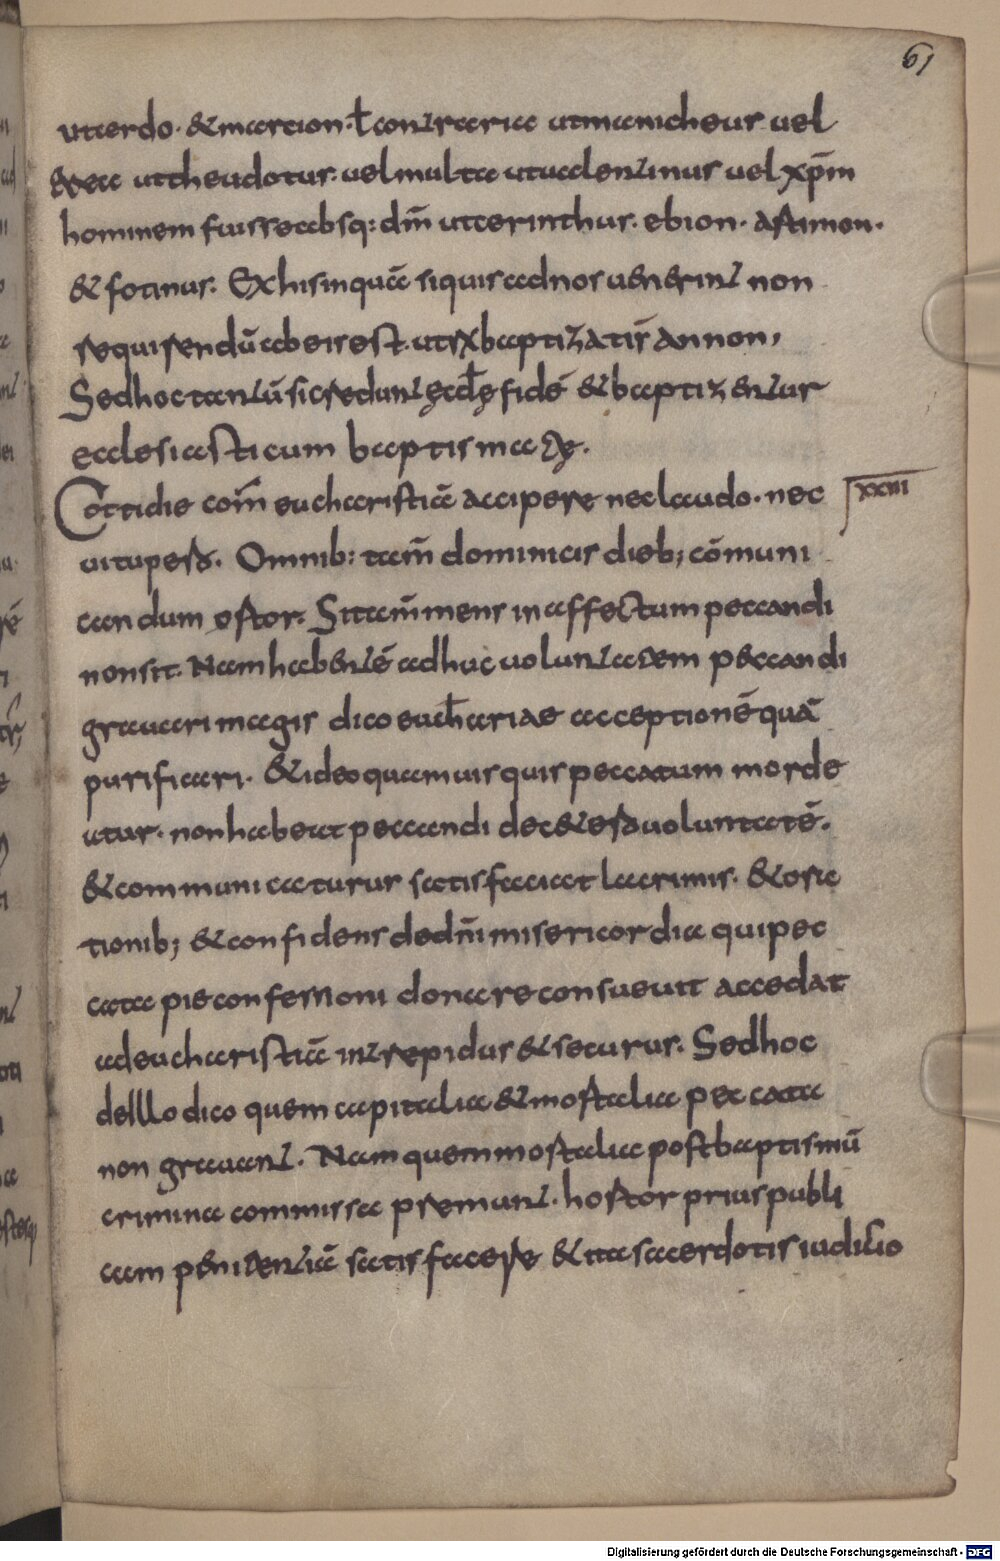 61
ut cerdo · & marcion · ł contraria ut manicheus uel
& rea ut theudotus · uel multa ut ualentinus uel xp̄m
hominem fuisse absq: dm̄ ut cerinthus · ebion · artimon ·
& fotinus · Ex his inquā si quis ad nos uenerint non
requirendū ab eis est · utrū baptizati st̄ an non,
Sed hoc tantū si credunt ęccłę fidē & baptizentur
ecclesiasticum baptisma
Cottidie com̄ eucharistiā accipere nec laudo · nec
xxiii
uitupero · Omnib: tam̄ dominicis dieb; cōmuni
candum ortor · Si tam̄ mens in affectum peccandi
non sit · Nam habentē adhuc uoluntatem peccandi
grauari magis dico eucħariae acceptionē quā
purificari · & ideo quamuis quis peccatum morde
atur · non habeat peccandi de cetero uoluntatē ·
& communicaturus satisfaciat lacrimis · & ora
tionib; & confidens de dn̄i misericordia qui pec
cata pie confessioni donare consueuit accedat
ad eucharistiā intrepidus & securus · Sed hoc
de illo dico quem capitalia & mortalia peccata
non grauant · Nam quem mortalia post baptismū
crimina commissa premunt · hortor prius publi
cam penitentiā satisfacere & ita sacerdotis iudicio
Digitalisierung gefördert durch die Deutsche Forschungsgemeinschaft - DFG